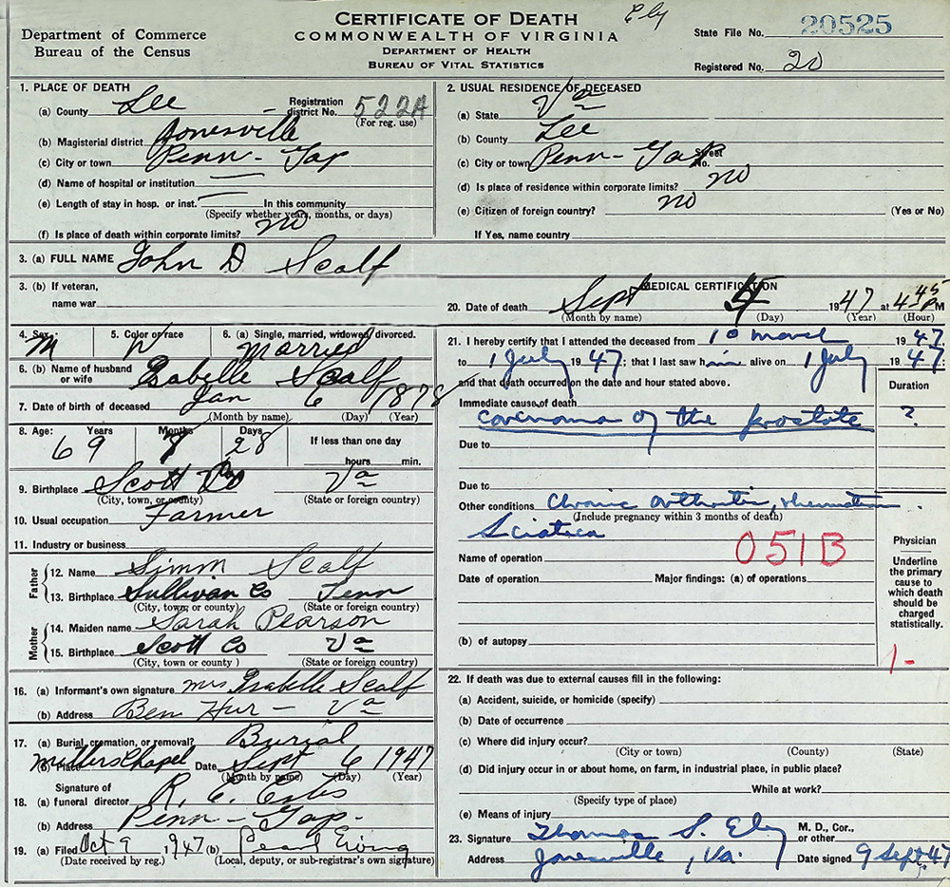 CERTIFICATE OF DEATH
Ely
COMMONWEALTH OF VIRGINIA
DEPARTMENT OF HEALTH
BUREAU OF VITAL STATISTICS
Department of Commerce
Bureau of the Census
State File No. 20525
Registered No. 20
1. PLACE OF DEATH
(a) County Lee Registration district No. 522A
(For reg. use)
(b) Magisterial district Jonesville
(c) City or town Penn-Gap
(d) Name of hospital or institution
(e) Length of stay in hosp. or inst. In this community
(Specify whether years, months, or days)
(f) Is place of death within corporate limits? no
2. USUAL RESIDENCE OF DECEASED
(a) State Va
(b) County Lee
(c) City or town Penn-Gap Street No.
(d) Is place of residence within corporate limits? no
(e) Citizen of foreign country? no (Yes or No)
If Yes, name country
3. (a) FULL NAME John D Scalf
3. (b) If veteran,
name war
4. Sex M 5. Color or race W 6. (a) Single, married, widowed, divorced. Married
6. (b) Name of husband or wife Isabelle Scalf
7. Date of birth of deceased Jan 6 1878
(Month by name) (Day) (Year)
8. Age: Years 69 Months 8 Days 28 If less than one day
hours min.
9. Birthplace Scott Co Va
(City, town, or county) (State or foreign country)
10. Usual occupation Farmer
11. Industry or business
Father 12. Name Simm Scalf
13. Birthplace Sullivan Co Tenn
(City, town, or county) (State or foreign country)
Mother 14. Maiden name Sarah Pearson
15. Birthplace Scott Co Va
(City, town or county) (State or foreign country)
16. (a) Informant's own signature Mrs Isabelle Scalf
(b) Address Ben Hur - Va
17. (a) Burial, cremation, or removal? Burial
(b) Place Millers Chapel Date Sept 6 1947
(Month by name) (Day) (Year)
Signature of
18. (a) funeral director R. E. Estes
(b) Address Penn-Gap-
19. (a) Filed Oct 9 1947 (b) Pearl Ewing
(Date received by reg.) (Local, deputy, or sub-registrar's own signature)
MEDICAL CERTIFICATION
20. Date of death Sept 4 1947 at 4:45 PM
(Month by name) (Day) (Year) (Hour)
21. I hereby certify that I attended the deceased from 10 March 1947
to 1 July 1947; that I last saw him alive on 1 July 1947
and that death occurred on the date and hour stated above.
Duration
Immediate cause of death
carcinoma of the prostate ?
Due to
Due to
Other conditions Chronic arthritis, rheumatism
(Include pregnancy within 3 months of death)
Sciatica
051B
Name of operation
Date of operation Major findings: (a) of operations
(b) of autopsy
Physician
Underline
the primary
cause to
which death
should be
charged
statistically.
1-
22. If death was due to external causes fill in the following:
(a) Accident, suicide, or homicide (specify)
(b) Date of occurrence
(c) Where did injury occur?
(City or town) (County) (State)
(d) Did injury occur in or about home, on farm, in industrial place, in public place?
While at work?
(Specify type of place)
(e) Means of injury
23. Signature Thomas S. Ely M. D., Cor., or other
Address Jonesville, Va. Date signed 9 Sept 47